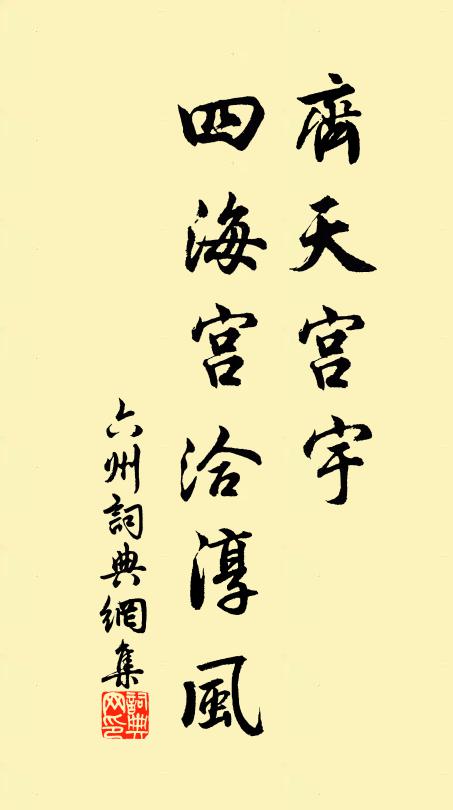 齊天宫宇
四海宫洽淳風
六州詞典網集
詞典
网印